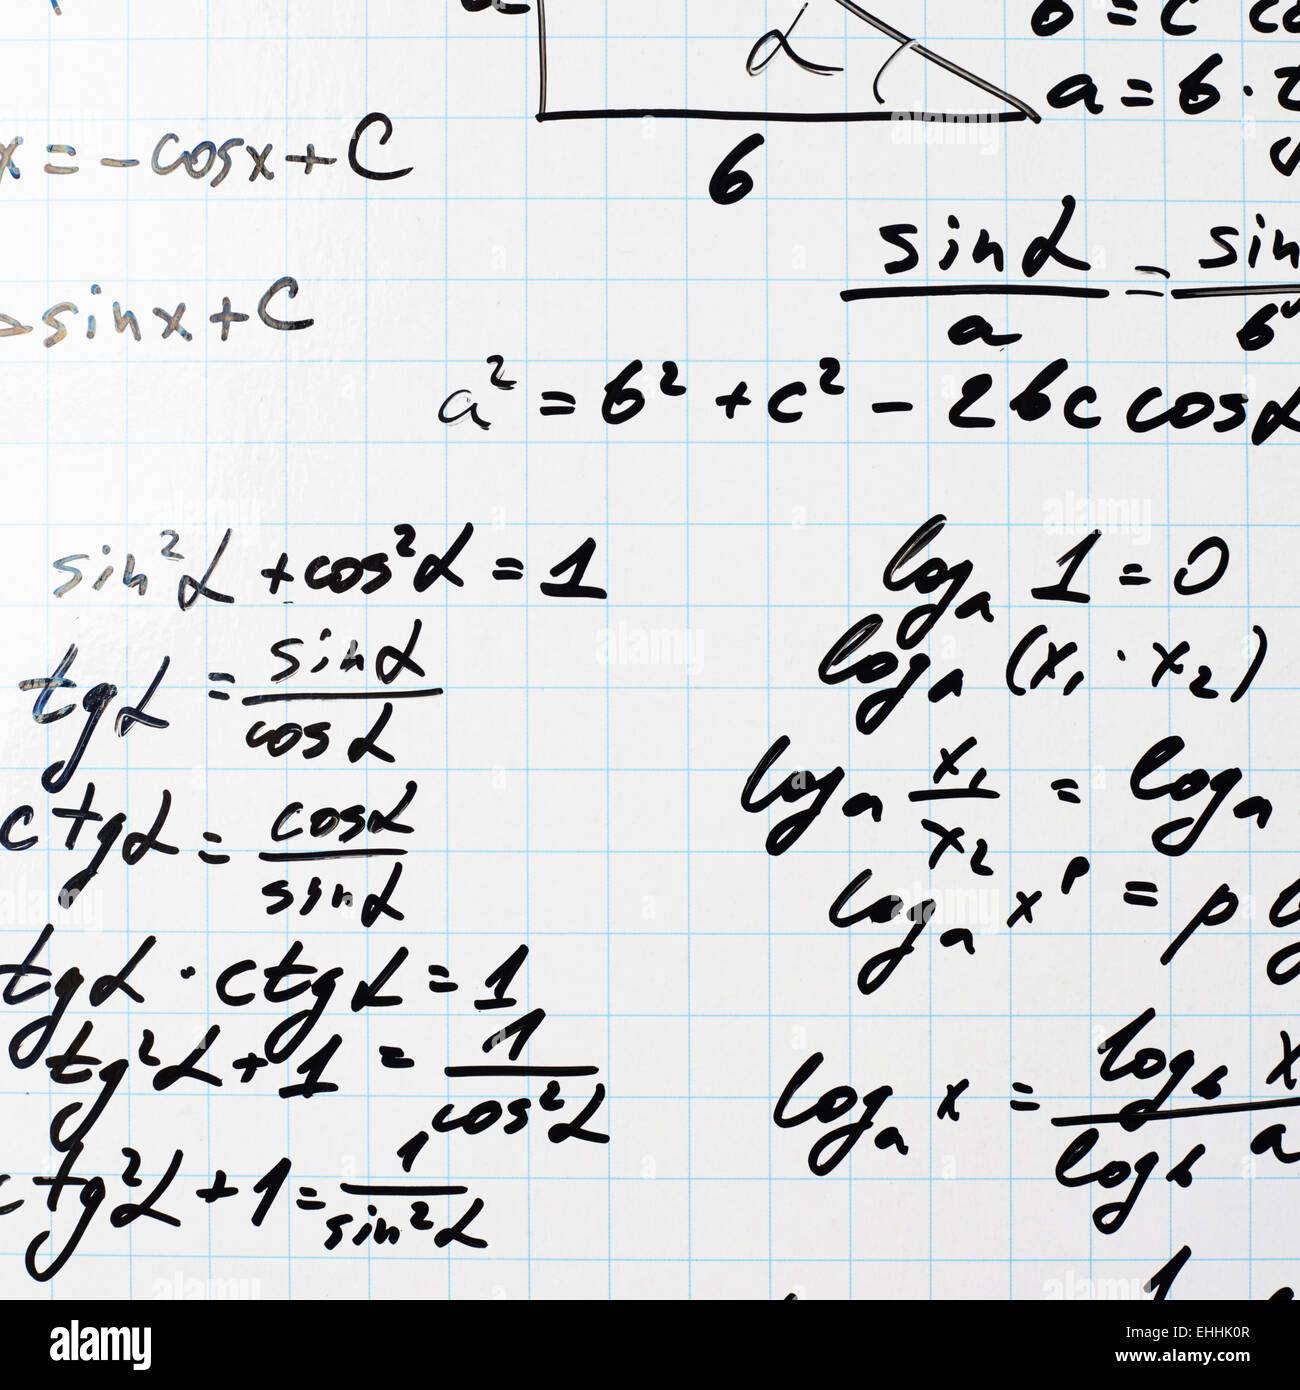 a
α
b = c co
a = b · t
x = - cosx + C
b
sinα / a = sin / b
sinx + C
a² = b² + c² - 2bc cosα
sin²α + cos²α = 1
tgα = sinα / cosα
ctgα = cosα / sinα
tgα · ctgα = 1
tg²α + 1 = 1 / cos²α
ctg²α + 1 = 1 / sin²α
logₐ 1 = 0
logₐ (x₁ · x₂)
logₐ x₁ / x₂ = logₐ
logₐ xᵖ = p
logₐ x = log_b x / log_b a
1
alamy
Image ID: EHHK0R
www.alamy.com